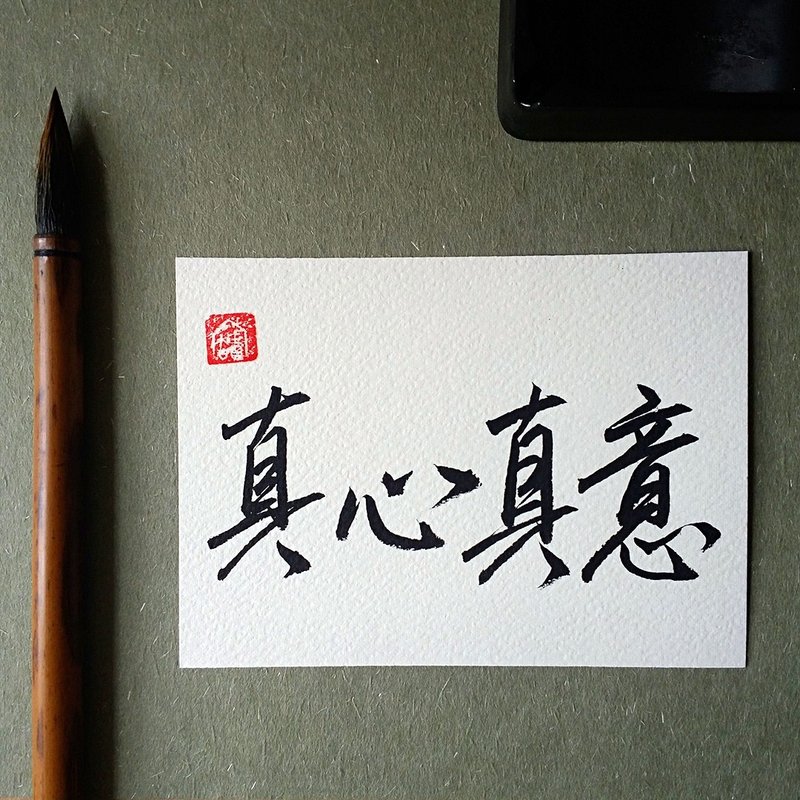 真心真意